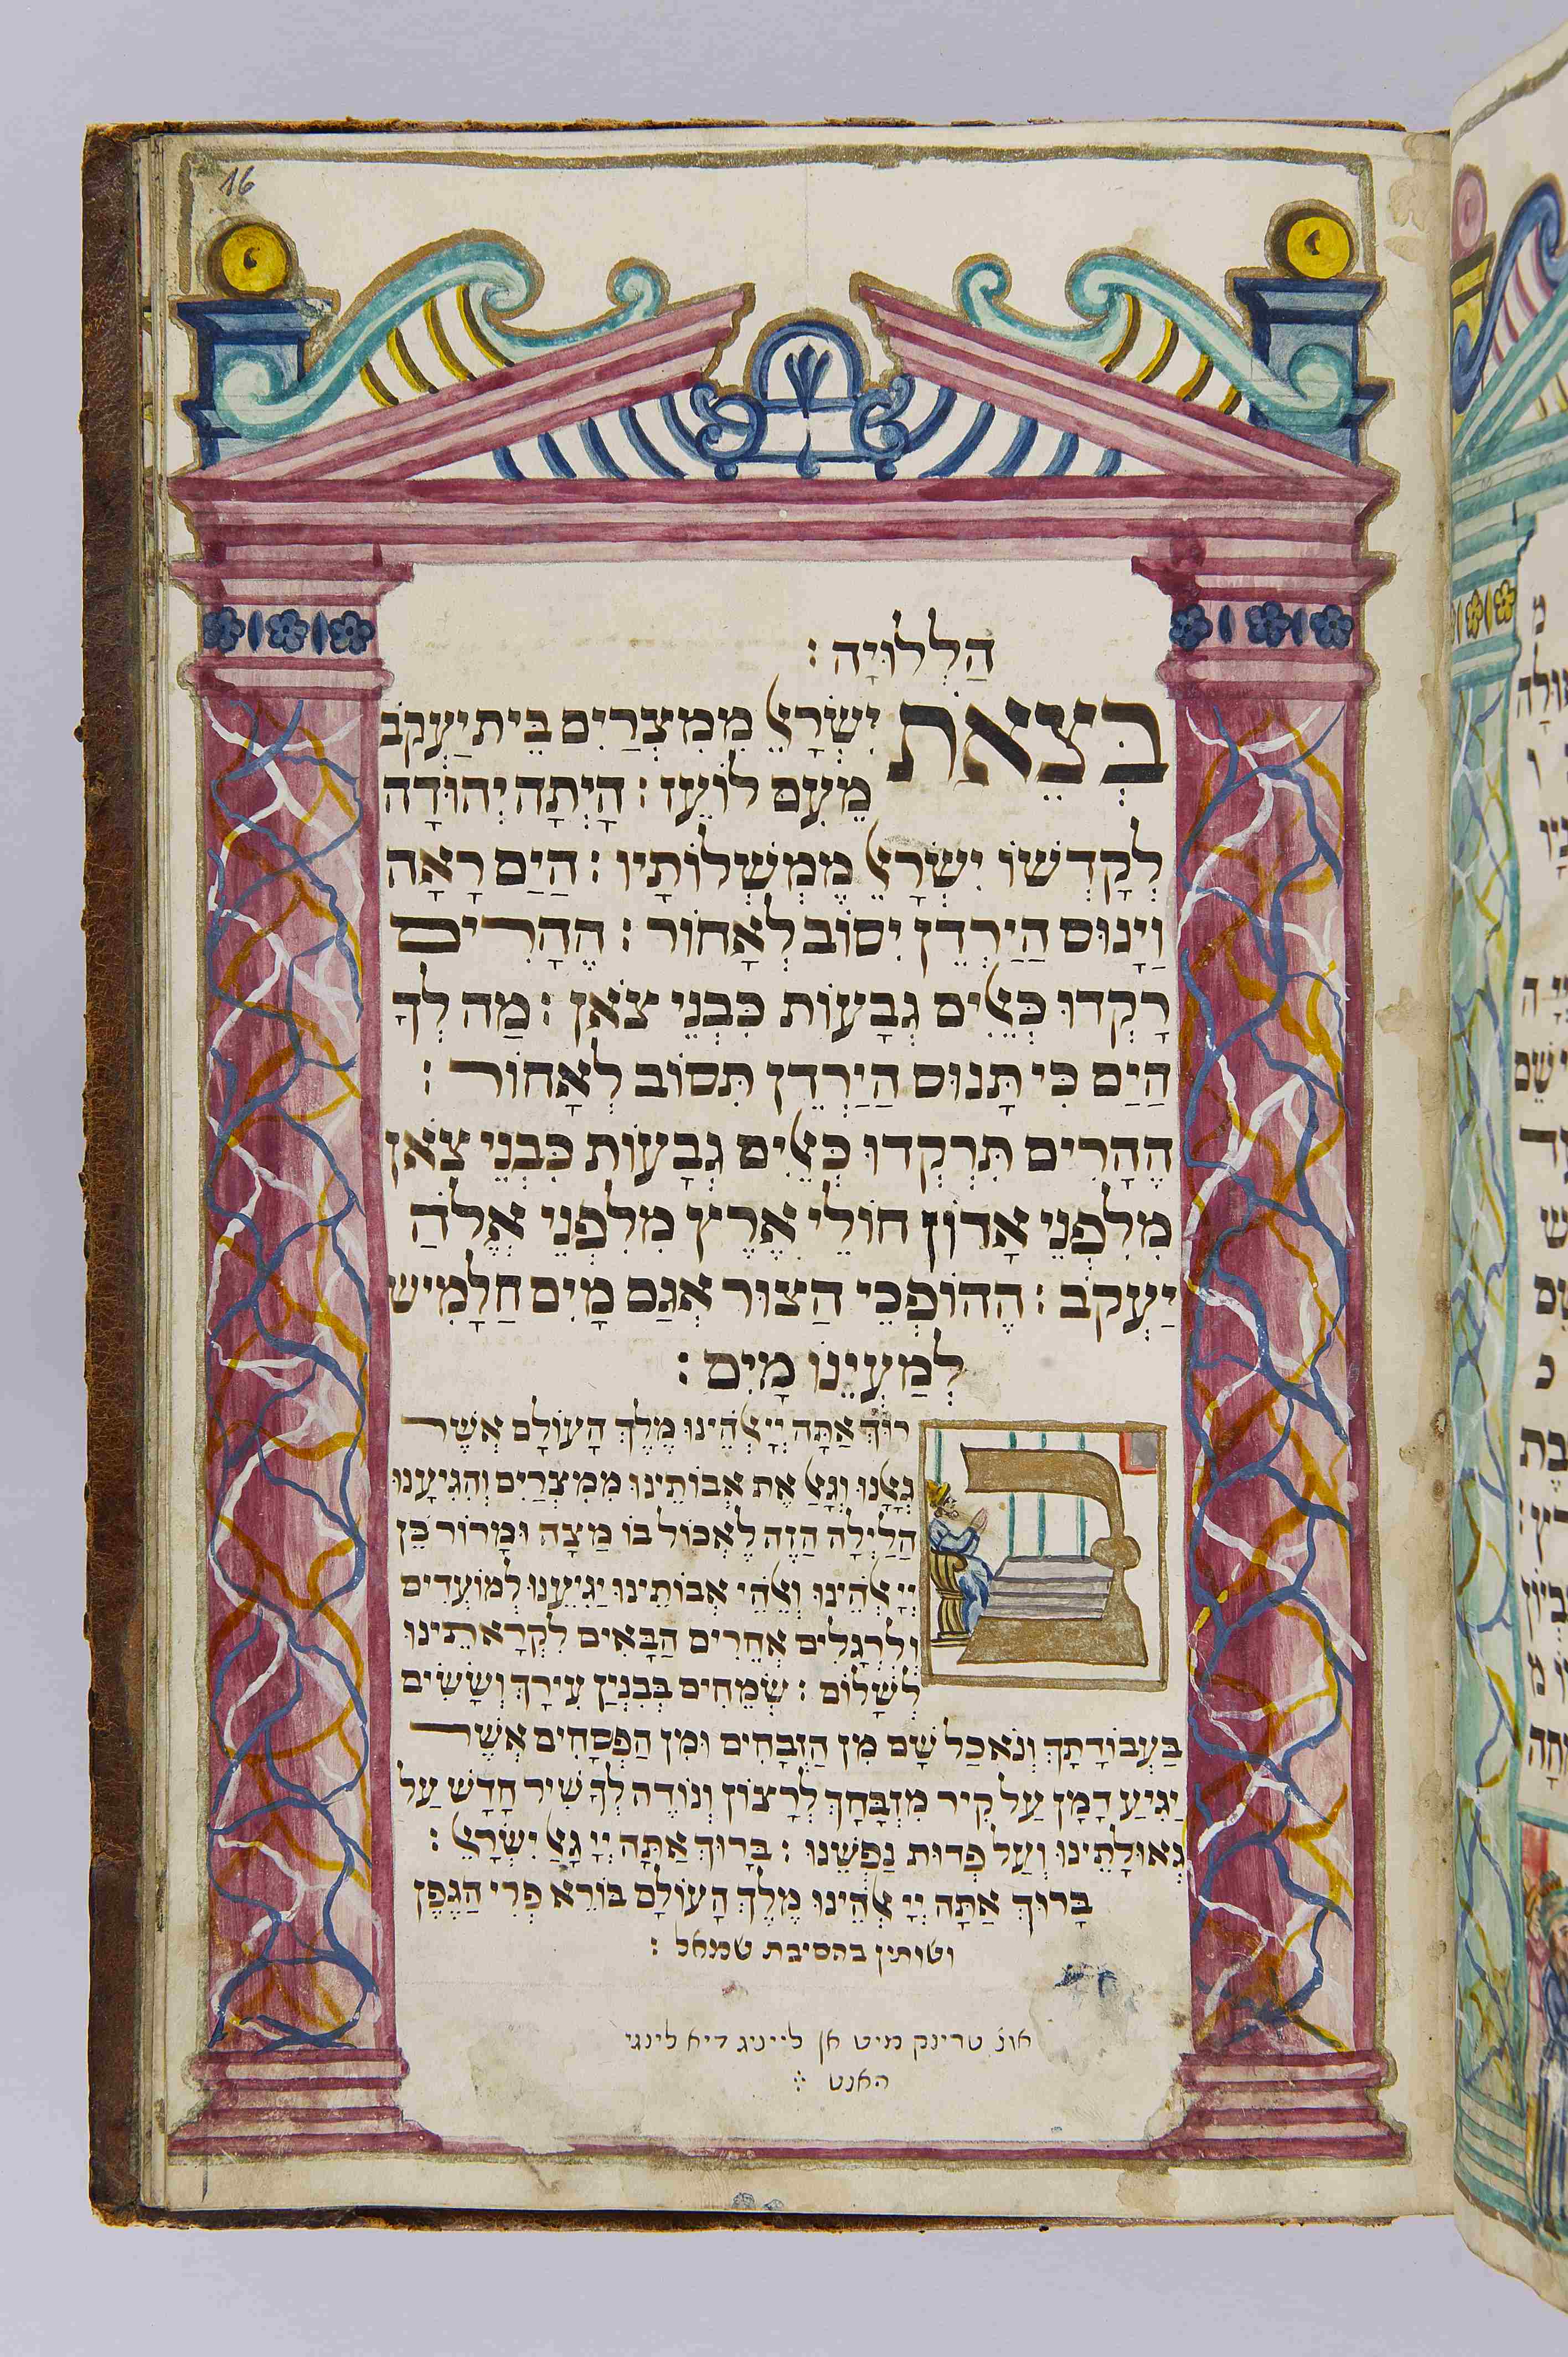 16
הַלְלוּיָה :
בְּצֵאת יִשְׂרָאֵל מִמִצְרַיִם בֵּית יַעֲקֹב
מֵעַם לוֹעֵז : הָיְתָה יְהוּדָה
לְקָדְשׁוֹ יִשְׂרָאֵל מַמְשְׁלוֹתָיו : הַיַם רָאָה
וַיָנוּס הַיַרְדֵן יִסוֹב לְאָחוֹר : הֶהָרִים
רָקְדוּ כְּאֵלִים גְבָעוֹת כִּבְנֵי צֹאן : מַה לְךָ
הַיַם כִּי תָנוּס הַיַרְדֵן תִּסוֹב לְאָחוֹר :
הֶהָרִים תִּרְקְדוּ כְּאֵלִים גְבָעוֹת כִּבְנֵי צֹאן
מִלִפְנֵי אָדוֹן חוּלִי אֶרֶץ מִלִפְנֵי אֱלֹהַ
יַעֲקֹב : הַהוֹפְכִי הַצוּר אֲגַם מָיִם חַלָמִישׁ
לְמַעְיְנוֹ מָיִם :
בָּרוּךְ אַתָּה יְיָ אֱלֹהֵינוּ מֶלֶךְ הָעוֹלָם אֲשֶׁר
גְאָלָנוּ וְגָאַל אֶת אֲבוֹתֵינוּ מִמִצְרַיִם וְהִגִיעָנוּ
הַלַיְלָה הַזֶה לֶאֱכוֹל בּוֹ מַצָה וּמָרוֹר כֵּן
יְיָ אֱלֹהֵינוּ וֵאלֹהֵי אֲבוֹתֵינוּ יַגִיעֵנוּ לְמוֹעֲדִים
וְלִרְגָלִים אֲחֵרִים הַבָּאִים לִקְרָאתֵינוּ
לְשָׁלוֹם : שְׂמֵחִים בְּבִנְיַן עִירָךְ וְשָׂשִׂים
בַּעֲבוֹדָתָךְ וְנֹאכַל שָׁם מִן הַזְבָחִים וּמִן הַפְּסָחִים אֲשֶׁר
יַגִיעַ דָמָן עַל קִיר מִזְבָּחָךְ לְרָצוֹן וְנוֹדֶה לְךָ שִׁיר חָדָשׁ עַל
גְאוּלָתֵינוּ וְעַל פְּדוּת נַפְשֵׁנוּ : בָּרוּךְ אַתָּה יְיָ גָאַל יִשְׂרָאֵל :
בָּרוּךְ אַתָּה יְיָ אֱלֹהֵינוּ מֶלֶךְ הָעוֹלָם בּוֹרֵא פְּרִי הַגֶפֶן
ושותין בהסיבת שמאל :
אונ טרינק מיט אן לייניג דיא לינגי
האנט